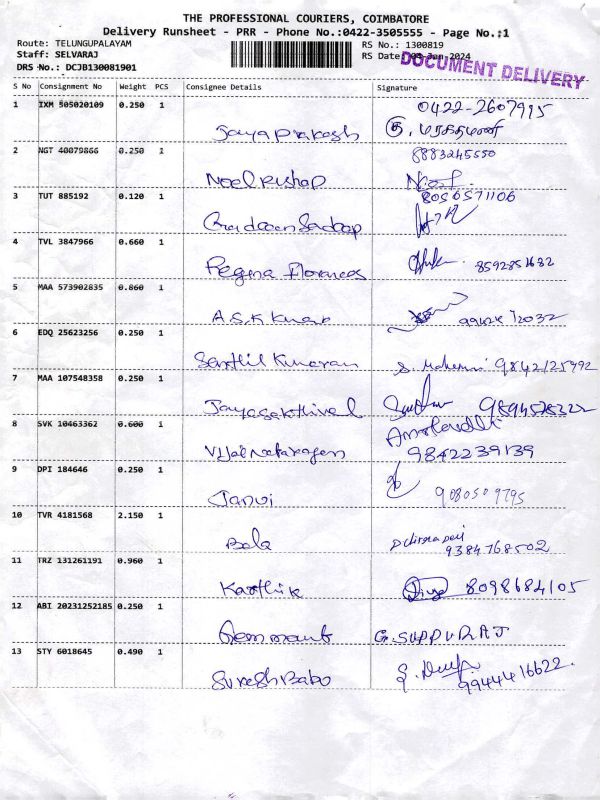 THE PROFESSIONAL COURIERS, COIMBATORE
Delivery Runsheet - PRR - Phone No.:0422-3505555 - Page No.:1
Route: TELUNGUPALAYAM RS No.: 1300819
Staff: SELVARAJ RS Date: 03-Jun-2024
DOCUMENT DELIVERY
DRS No.: DCJB130081901
S No Consignment No Weight PCS Consignee Details Signature
1 IXM 505020109 0.250 1 0422-2607995
Jaya prakash
2 NGT 40079866 0.250 1 8883245550
Noel Bishop
3 TUT 885192 0.120 1 8056571106
4 TVL 3847966 0.660 1
Regina Florances 8592851682
5 MAA 573902835 0.860 1
A.S.K Kumar
6 EDQ 25623256 0.250 1
Senthil Kumaran 9842125992
7 MAA 107548358 0.250 1
Jayasakthivel
8 SVK 10463362 0.600 1
Vijai Natarajan 9842239139
9 DPI 184646 0.250 1
Janvi 9080509795
10 TVR 4181568 2.150 1
Bala 9384768502
11 TRZ 131261191 0.960 1
Karthik 8098684105
12 ABI 20231252185 0.250 1
Hemmant G.SUPPURAJ
13 STY 6018645 0.490 1
Suresh Babo 9944416622.